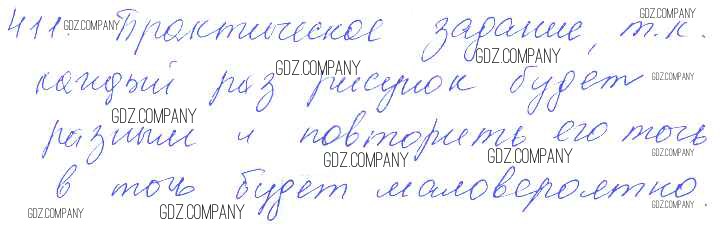 411. Практическое задание, т.к.
каждый раз рисунок будет
разным и повторить его точь
в точь будет маловероятно.
GDZ.COMPANY
GDZ.COMPANY
GDZ.COMPANY
GDZ.COMPANY
GDZ.COMPANY
GDZ.COMPANY
GDZ.COMPANY
GDZ.COMPANY
GDZ.COMPANY
GDZ.COMPANY
GDZ.COMPANY
GDZ.COMPANY